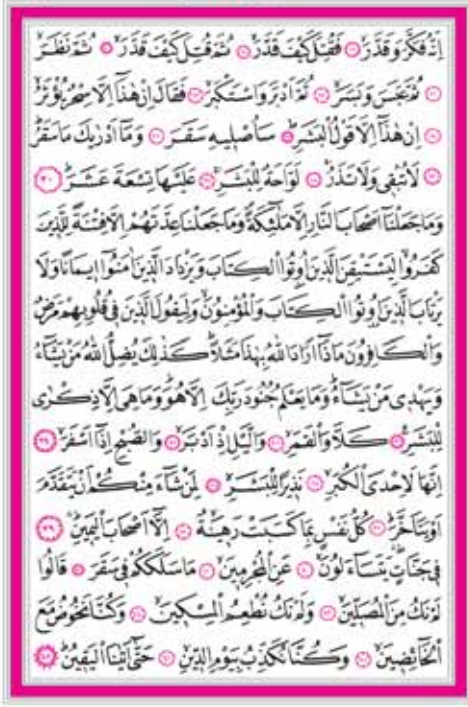 اِنَّهُ فَكَّرَ وَقَدَّرَۙ ﴿١٨﴾ فَقُتِلَ كَيْفَ قَدَّرَۙ ﴿١٩﴾ ثُمَّ قُتِلَ كَيْفَ قَدَّرَۙ ﴿٢٠﴾ ثُمَّ نَظَرَۙ
﴿٢١﴾ ثُمَّ عَبَسَ وَبَسَرَۙ ﴿٢٢﴾ ثُمَّ اَدْبَرَ وَاسْتَكْبَرَۙ ﴿٢٣﴾ فَقَالَ اِنْ هٰذَٓا اِلَّا سِحْرٌ يُؤْثَرُۙ
﴿٢٤﴾ اِنْ هٰذَٓا اِلَّا قَوْلُ الْبَشَرِۜ ﴿٢٥﴾ سَاُصْلٖيهِ سَقَرَ ﴿٢٦﴾ وَمَٓا اَدْرٰيكَ مَا سَقَرُۜ
﴿٢٧﴾ لَا تُبْقٖي وَلَا تَذَرُۚ ﴿٢٨﴾ لَوَّاحَةٌ لِلْبَشَرِۚ ﴿٢٩﴾ عَلَيْهَا تِسْعَةَ عَشَرَۜ ﴿٣٠﴾
وَمَا جَعَلْنَٓا اَصْحَابَ النَّارِ اِلَّا مَلٰٓئِكَةًۖ وَمَا جَعَلْنَا عِدَّتَهُمْ اِلَّا فِتْنَةً لِلَّذٖينَ
كَفَرُواۙ لِيَسْتَيْقِنَ الَّذٖينَ اُو۫تُوا الْكِتَابَ وَيَزْدَادَ الَّذٖينَ اٰمَنُٓوا اٖيمَانًا وَلَا
يَرْتَابَ الَّذٖينَ اُو۫تُوا الْكِتَابَ وَالْمُؤْمِنُونَۙ وَلِيَقُولَ الَّذٖينَ فٖي قُلُوبِهِمْ مَرَضٌ
وَالْكَافِرُونَ مَاذَٓا اَرَادَ اللّٰهُ بِهٰذَا مَثَلًاۜ كَذٰلِكَ يُضِلُّ اللّٰهُ مَنْ يَشَٓاءُ
وَيَهْدٖي مَنْ يَشَٓاءُۜ وَمَا يَعْلَمُ جُنُودَ رَبِّكَ اِلَّا هُوَۜ وَمَا هِيَ اِلَّا ذِكْرٰى
لِلْبَشَرِ۟ ﴿٣١﴾ كَلَّا وَالْقَمَرِۙ ﴿٣٢﴾ وَالَّيْلِ اِذْ اَدْبَرَۙ ﴿٣٣﴾ وَالصُّبْحِ اِذَٓا اَسْفَرَۙ ﴿٣٤﴾
اِنَّهَا لَاِحْدَى الْكُبَرِۙ ﴿٣٥﴾ نَذٖيرًا لِلْبَشَرِۙ ﴿٣٦﴾ لِمَنْ شَٓاءَ مِنْكُمْ اَنْ يَتَقَدَّمَ
اَوْ يَتَاَخَّرَۜ ﴿٣٧﴾ كُلُّ نَفْسٍ بِمَا كَسَبَتْ رَهٖينَةٌۙ ﴿٣٨﴾ اِلَّٓا اَصْحَابَ الْيَمٖينِۜ ﴿٣٩﴾
فٖي جَنَّاتٍۜ يَتَسَٓاءَلُونَۙ ﴿٤٠﴾ عَنِ الْمُجْرِمٖينَۙ ﴿٤١﴾ مَا سَلَكَكُمْ فٖي سَقَرَ ﴿٤٢﴾ قَالُوا
لَمْ نَكُ مِنَ الْمُصَلّٖينَۙ ﴿٤٣﴾ وَلَمْ نَكُ نُطْعِمُ الْمِسْكٖينَۙ ﴿٤٤﴾ وَكُنَّا نَخُوضُ مَعَ
الْخَٓائِضٖينَۙ ﴿٤٥﴾ وَكُنَّا نُكَذِّبُ بِيَوْمِ الدّٖينِۙ ﴿٤٦﴾ حَتّٰٓى اَتٰينَا الْيَقٖينُۜ ﴿٤٧﴾